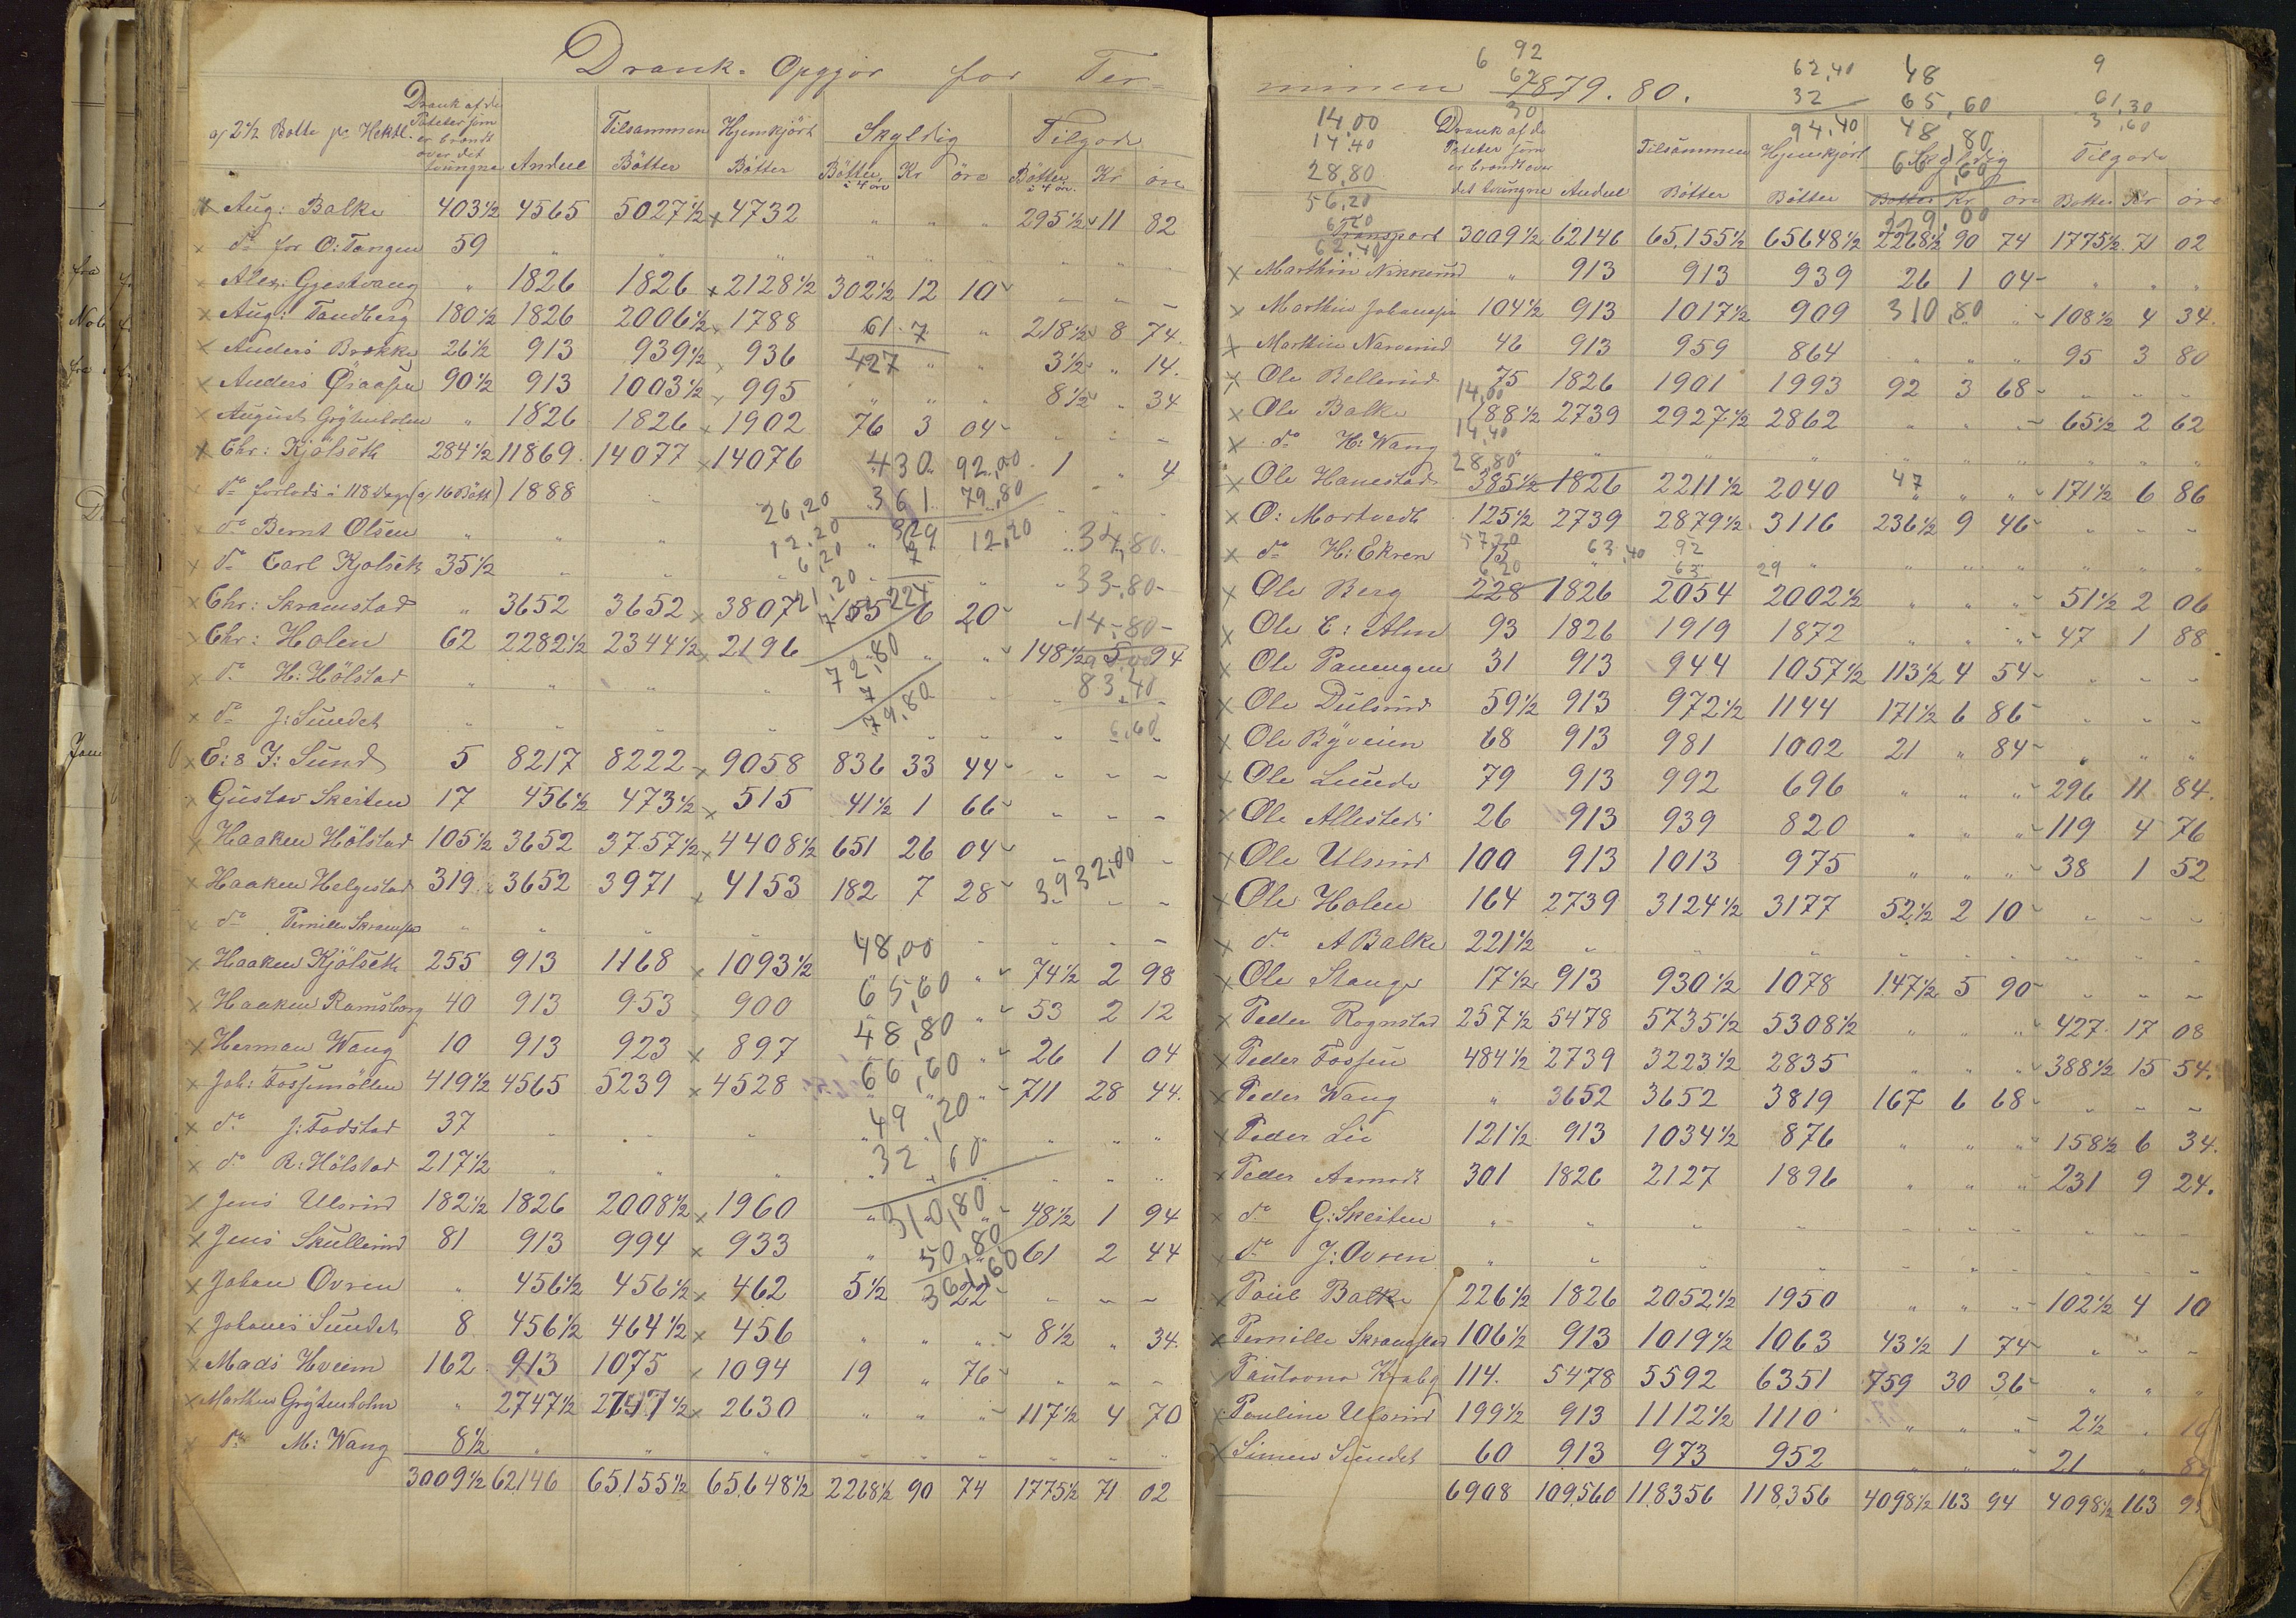 Drank-Opgjör for Ter-
a/ 2½ Bötte pr Hektl. Drank af de Poteter som er brændt over det tvungne Andeel Tilsammen Bötter Hjemkjört Bötter Skyldig Bötter à 4 öre Kr öre Tilgode Bötter à 4 öre Kr öre
Aug: Balke 403½ 4565 5027½ 4732 " " " 295½ 11 82
do for O: Tangen 59
Alex: Gjestvang " 1826 1826 2128½ 302½ 12 10
Aug: Tandberg 180½ 1826 2006½ 1788 61.7 " 218½ 8 74.
Anders Brække 26½ 913 939½ 936 427 " " 3½ " 14.
Anders Ösaasen 90½ 913 1003½ 995 " " " 8½ " 34
August Grytenholm " 1826 1826 1902 76 3 04
Chr: Kjölseth 284½ 11869 14077 14076 430 92,00 1 " 4
do forlods i 118 Dage (a/ 16 Bött) 1888 26,20 361 79,80
do Bernt Olsen " " " 12,20 329 12,20 34,80
do Carl Kjolseth 35½ 6,20 7 33,80
Chr: Skramstad " 3652 3652 3807 21,20 155 224 6 20 14,80
Chr: Holen 62 2282½ 2344½ 2196 72,80 " " 148½ 5 94
do H: Hölstad 7 83,40
do J: Sundet 79,80 6,60
E: & J: Sund 5 8217 8222 9058 836 33 44
Gustav Skeiten 17 456½ 473½ 515 41½ 1 66
Haaken Hölstad 105½ 3652 3757½ 4408½ 651 26 04
Haaken Helgestad 319 3652 3971 4153 182 7 28 3932,00
do Pernille Skramstad
Haaken Kjölseth 255 913 1168 1093½ 48,00 " 74½ 2 98
Haaken Ramsborg 40 913 953 900 65,60 " 53 2 12
Herman Wang 10 913 923 897 48,80 " 26 1 04
Joh: Fossemöllen 419½ 4565 5239 4528 66,60 " 711 28 44.
do J: Fodstad 37 49,20
do R: Hölstad 217½ 32,60
Jens Ulsrud 182½ 1826 2008½ 1960 310,80 48½ 1 94
Jens Skullerud 81 913 994 933 50,80 61 2 44
Johan Ovren " 456½ 456½ 462 5½ 361,60 22
Johanes Sundet 8 456½ 464½ 456 " " " 8½ " 34.
Mads Hveem 162 913 1075 1094 19 " 76
Marthin Grytenholm " 2747½ 2747½ 2630 " " " 117½ 4 70
do M: Wang 8½
3009½ 62146 65155½ 65648½ 2268½ 90 74 1775½ 71 02
6 92 62,40 48 9
minen 1879.80. 62 30 32 65,60 61,30
14,00 94,40 48,80 3,60
14,40 66,60
28,80 Drank af de Poteter som er brændt over det tvungne Andeel Tilsammen Bötter Hjemkjört Bötter Skyldig Bötter Kr öre Tilgode Bötter Kr öre
56,20 229,00
6,20
62,40
Transport 3009½ 62146 65,155½ 65648½ 2268½ 90 74 1775½ 71 02
Marthin Nikkerud " 913 913 939 26 1 04
Marthin Johansen 104½ 913 1017½ 909 310,80 " 108½ 4 34.
Marthin Narverud 46 913 959 864 " " " 95 3 80
Ole Bellerud 75 1826 1901 1993 92 3 68
14,00
Ole Balke 188½ 2739 2927½ 2862 " " " 65½ 2 62
do H: Wang 14,40
28,80
Ole Hanestad 385½ 1826 2211½ 2040 47 " " 171½ 6 86
O: Mortvedt 125½ 2739 2879½ 3116 236½ 9 46
57,20
do H: Ekren 15 63,40 92
6,20 63 29
Ole Berg 228 1826 2054 2002½ " " " 51½ 2 06
Ole E: Alm 93 1826 1919 1872 " " " 47 1 88
Ole Panengen 31 913 944 1057½ 113½ 4 54
Ole Dulsrud 59½ 913 972½ 1144 171½ 6 86
Ole Byveien 68 913 981 1002 21 " 84
Ole Lunde 79 913 992 696 " " " 296 11 84.
Ole Allestedt 26 913 939 820 " " " 119 4 76
Ole Ulsrud 100 913 1013 975 " " " 38 1 52
Ole Holen 164 2739 3124½ 3177 52½ 2 10
do A Balke 221½
Ole Stange 17½ 913 930½ 1078 147½ 5 90
Peder Rognstad 257½ 5478 5735½ 5308½ " " " 427 17 08
Peder Fossen 484½ 2739 3223½ 2835 " " " 388½ 15 54.
Peder Wang " 3652 3652 3819 167 6 68
Peder Lie 121½ 913 1034½ 876 " " " 158½ 6 34.
Peder Aamodt 301 1826 2127 1896 " " " 231 9 24.
do G: Skeiten
do J: Ovren
Poul Balke 226½ 1826 2052½ 1950 " " " 102½ 4 10
Pernille Skramstad 106½ 913 1019½ 1063 43½ 1 74
Krabg 114. 5478 5592 6351 759 30 36
Pouline Ulsrud 199½ 913 1112½ 1110 " " " 2½ "
Simen Sundet 60 913 973 952 " " " 21 "
6908 109560 118356 118356 4098½ 163 94 4098½ 163